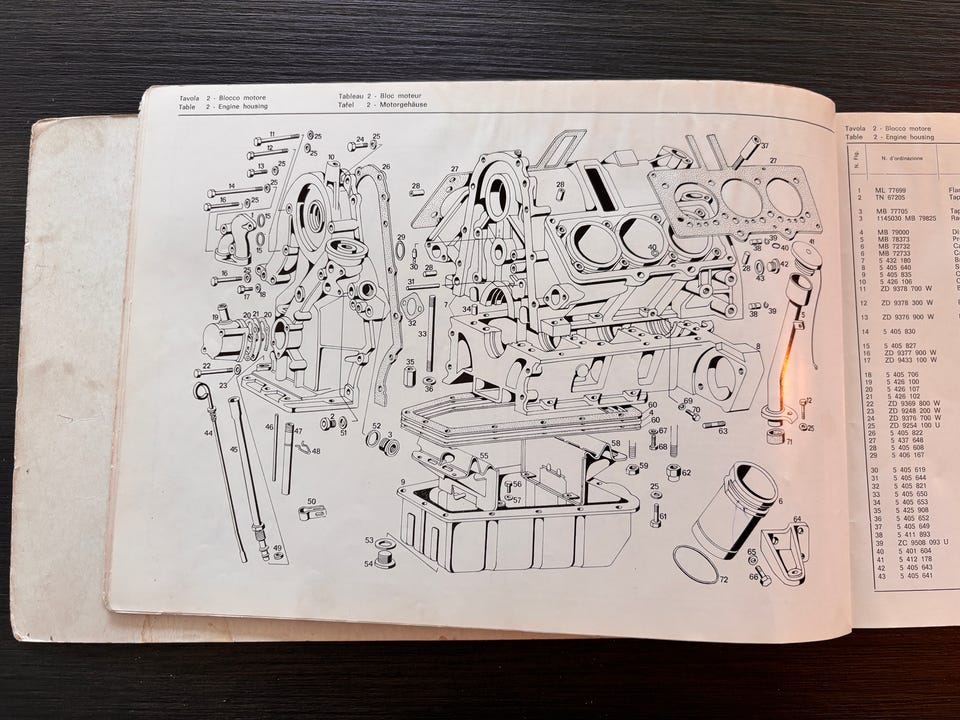 Tavola 2 - Blocco motore
Table 2 - Engine housing
Tableau 2 - Bloc moteur
Tafel 2 - Motorgehäuse
11
25
12
25
13
25
14
25
16
25
15
15
16
25
17
18
10
24
25
26
19
20
21
20
20
22
23
29
28
30
28
31
32
7
33
34
35
36
27
28
37
27
38
39
40
40
28
43
42
38
39
41
5
8
44
45
46
47
48
49
50
2
51
52
3
9
55
56
57
58
59
60
4
60
67
68
69
70
63
62
25
61
53
54
6
72
64
65
66
12
25
71
Tavola 2 - Blocco motore
Table 2 - Engine housing
N. Fig.
N. d'ordinazione
1 ML 77699
2 TN 67205
3 MB 77705
3 1145030 MB 79825
4 MB 79000
5 MB 78373
6 MB 72732
6 MB 72733
7 5 432 180
8 5 405 640
9 5 405 835
10 5 426 106
11 ZD 9378 700 W
12 ZD 9378 300 W
13 ZD 9376 900 W
14 5 405 830
15 5 405 827
16 ZD 9377 900 W
17 ZD 9433 100 W
18 5 405 706
19 5 426 100
20 5 426 107
21 5 426 102
22 ZD 9369 800 W
23 ZD 9248 200 W
24 ZD 9376 700 W
25 ZD 9254 100 U
26 5 405 822
27 5 437 648
28 5 405 608
29 5 406 167
30 5 405 619
31 5 405 644
32 5 405 821
33 5 405 650
34 5 405 653
35 5 425 908
36 5 405 652
37 5 405 649
38 5 411 893
39 ZC 9508 093 U
40 5 401 604
41 5 412 178
42 5 405 643
43 5 405 641